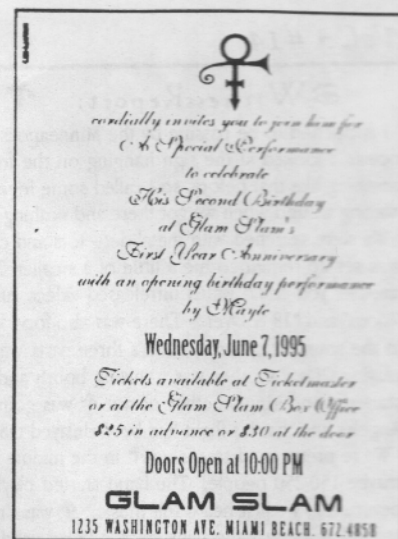 cordially invites you to join him for
A Special Performance
to celebrate
His Second Birthday
at Glam Slam's
First Year Anniversary
with an opening birthday performance
by Mayte
Wednesday, June 7, 1995
Tickets available at Ticketmaster
or at the Glam Slam Box Office
$25 in advance or $30 at the door
Doors Open at 10:00 PM
GLAM SLAM
1235 WASHINGTON AVE. MIAMI BEACH. 672.4858